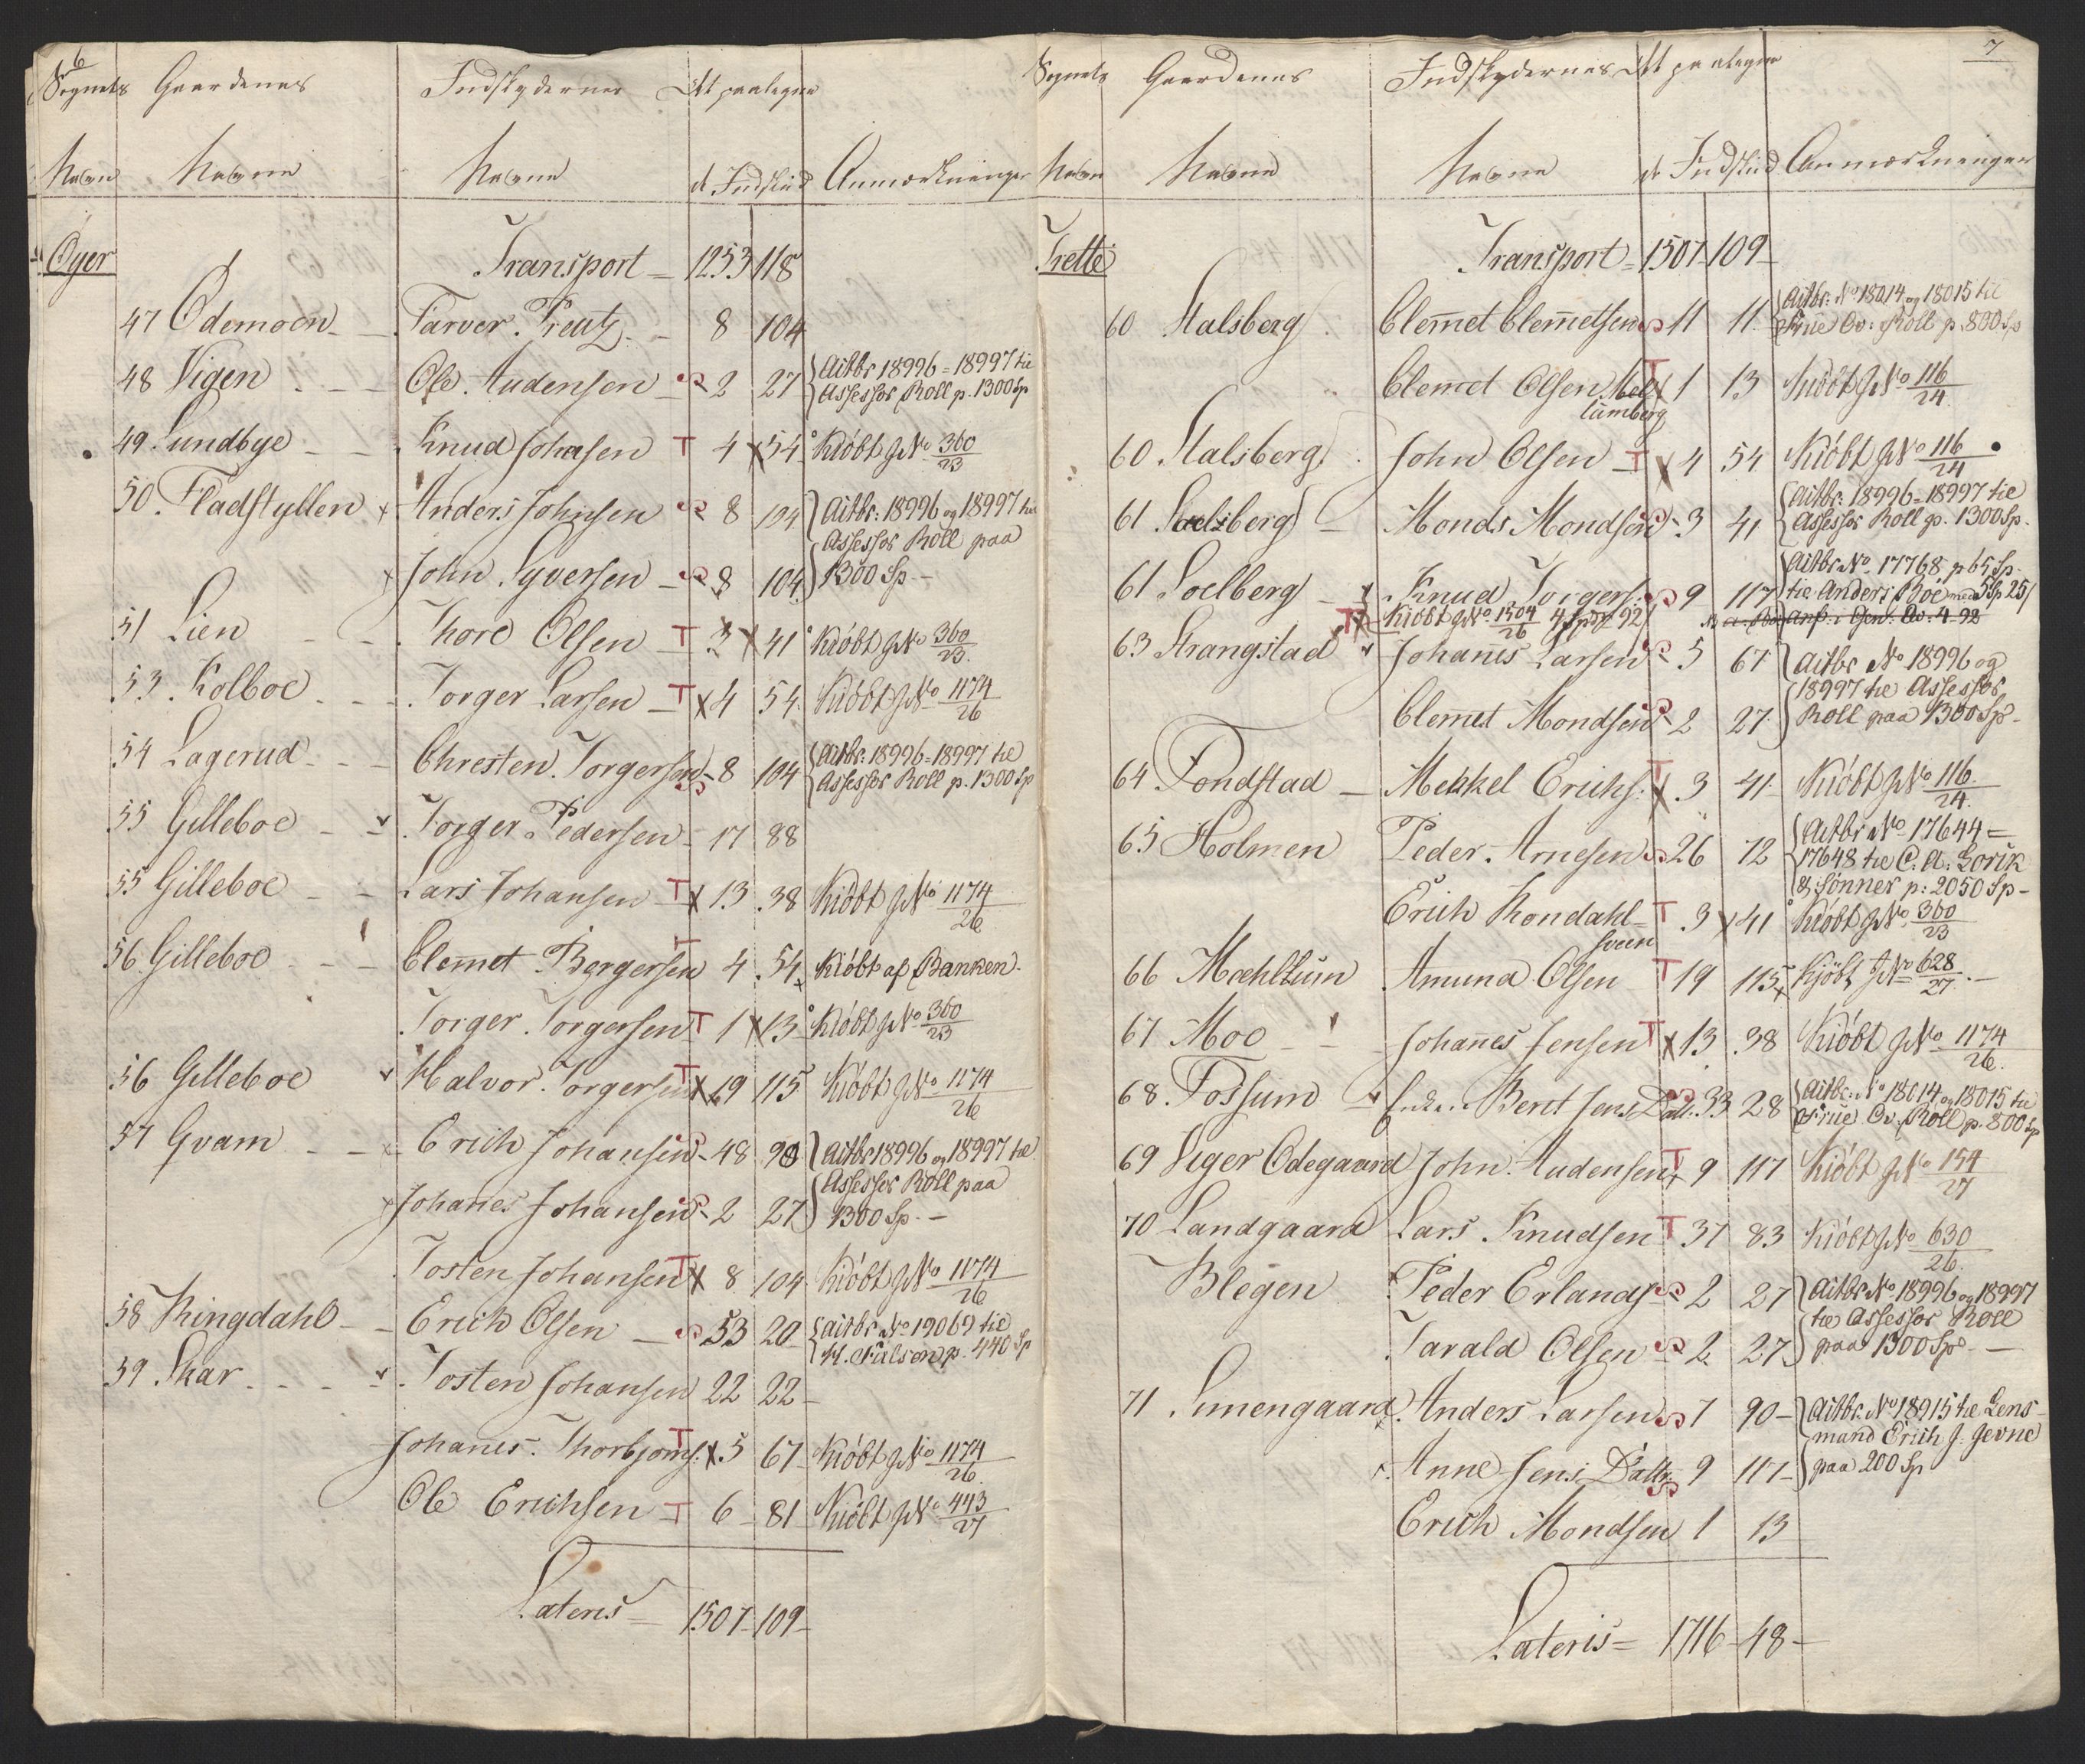 6
Sognets Gaardenes Indskydernes Det paalagte
Navn Navne Navne Indskud Anmærkninger
Öyer Transport 1253 118
47 Ödemoen Farver Kreutz 8 104
48 Vigen Ole Audensen 2 27 Aitbr 18996 = 18997 til
Assessor Roll p. 1300 Sp
49 Sundbye Knud Johnsen T 4 54 Kiöbt J No 360/23
50 Fladstyllen Anders Johnsen 8 104 Aitbr: 18996 og 18997 til
Assessor Roll paa
John Syversen 8 104 1300 Sp
51 Lien Thore Olsen T 3 41 Kiöbt J No 360/23
53 Kolboe Torger Larsen T 4 54 Kiöbt J No 1174/26
54 Lagerud Christen Torgersen 8 104 Aitbr: 18996 = 18997 til
Assessor Roll p. 1300 Sp
55 Gilleboe Torger Pedersen 17 88
55 Gilleboe Lars Johansen T 13 38 Kiöbt J No 1174/26
56 Gilleboe Clemet Bergersen T 4 54 Kiöbt af Banken
Torger Torgersen T 1 13 Kiöbt J No 360/23
56 Gilleboe Halvor Torgersen T 19 115 Kiöbt J No 1174/26
57 Qvam Erich Johansen 48 90 Aitbr 18996 og 18997 til
Assessor Roll paa
Johanes Johansen 2 27 1300 Sp
Tosten Johansen T 8 104 Kiöbt J No 1174/26
58 Ringdahl Erich Olsen 53 20 Aitbr No 19069 til
H. Falsen p. 440 Sp
59 Skar Tosten Johansen 22 22
Johanes Thorbjorns: T 5 67 Kiöbt J No 1174/26
Ole Erichsen T 6 81 Kiöbt J No 443/27
Lateris 1507 109
7
Sognets Gaardenes Indskydernes Det paalagte
Navn Navne Navne Indskud Anmærkninger
Trette Transport 1507 109
60 Stalsberg Clemet Clemetsen 11 11 Aitbr: No 18014 og 18015 til
Frue Roll p. 800 Sp
Clemet Olsen Mel= T 1 13 Kiöbt J No 116/24
lumberg
60 Stalsberg John Olsen T 4 54 Kiöbt J No 116/24
61 Soelsberg Monds Mondsen 3 41 Aitbr: 18996 = 18997 til
Assessor Roll p. 1300 Sp.
61 Soelberg Knud Torgers: 9 117 Aitbr No 17768 p 65 Sp.
til Anders Böe med 5 Sp 25
Kiöbt J No 1504/26 4 Spd 92
63 Strangstad Johanes Larsen 5 67 Aitbr No 18996 og
18997 til Assessor
Clemet Mondsen 2 27 Roll paa 1300 Sp
64 Tondstad Mekkel Erichs: T 3 41 Kiöbt J No 116/24
65 Holmen Peder Arnesen 26 12 Aitbr No 17644 =
17648 til C. A. Lorik
& Sønner p: 2050 Sp
Erich Rondahl T 3 41 Kiöbt J No 360/23
sveen
66 Mæhllum Amund Olsen T 19 115 Kjöbt J No 628/27
67 Moe Johanes Jensen T 13 38 Kiöbt J No 1174/26
68 Fossum Enken Beret Jens Datt: 33 28 Aitbr: No 18014 og 18015 til
Frue Roll p. 800 Sp
69 Viger Ödegaard John Audensen T 9 117 Kiöbt J No 154/27
70 Landgaard Lars Knudsen T 37 83 Kiöbt J No 630/26
Blegen Peder Erlands: 2 27 Aitbr No 18996 og 18997
til Assessor Roll
Tarald Olsen 2 27 paa 1300 Sp
71 Simengaard Anders Larsen 7 90 Aitbr. No 18915 til Lens=
mand Erich J. Jevne
Anne Jens Datt: 9 117 paa 200 Sp
Erich Mondsen 1 13
Lateris 1716 48